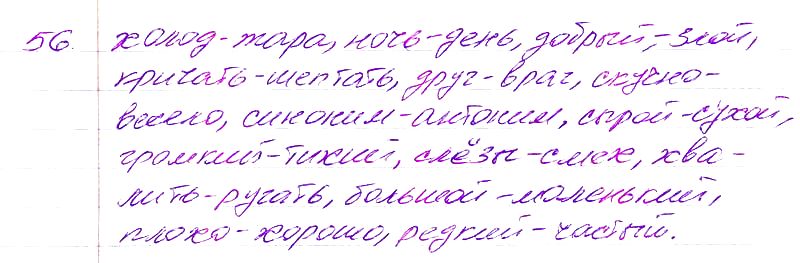 56. холод-жара, ночь-день, добрый-злой,
кричать-шептать, друг-враг, скучно-
весело, синоним-антоним, сырой-сухой,
громкий-тихий, слёзы-смех, хва-
лить-ругать, большой-маленький,
плохо-хорошо, редкий-частый.